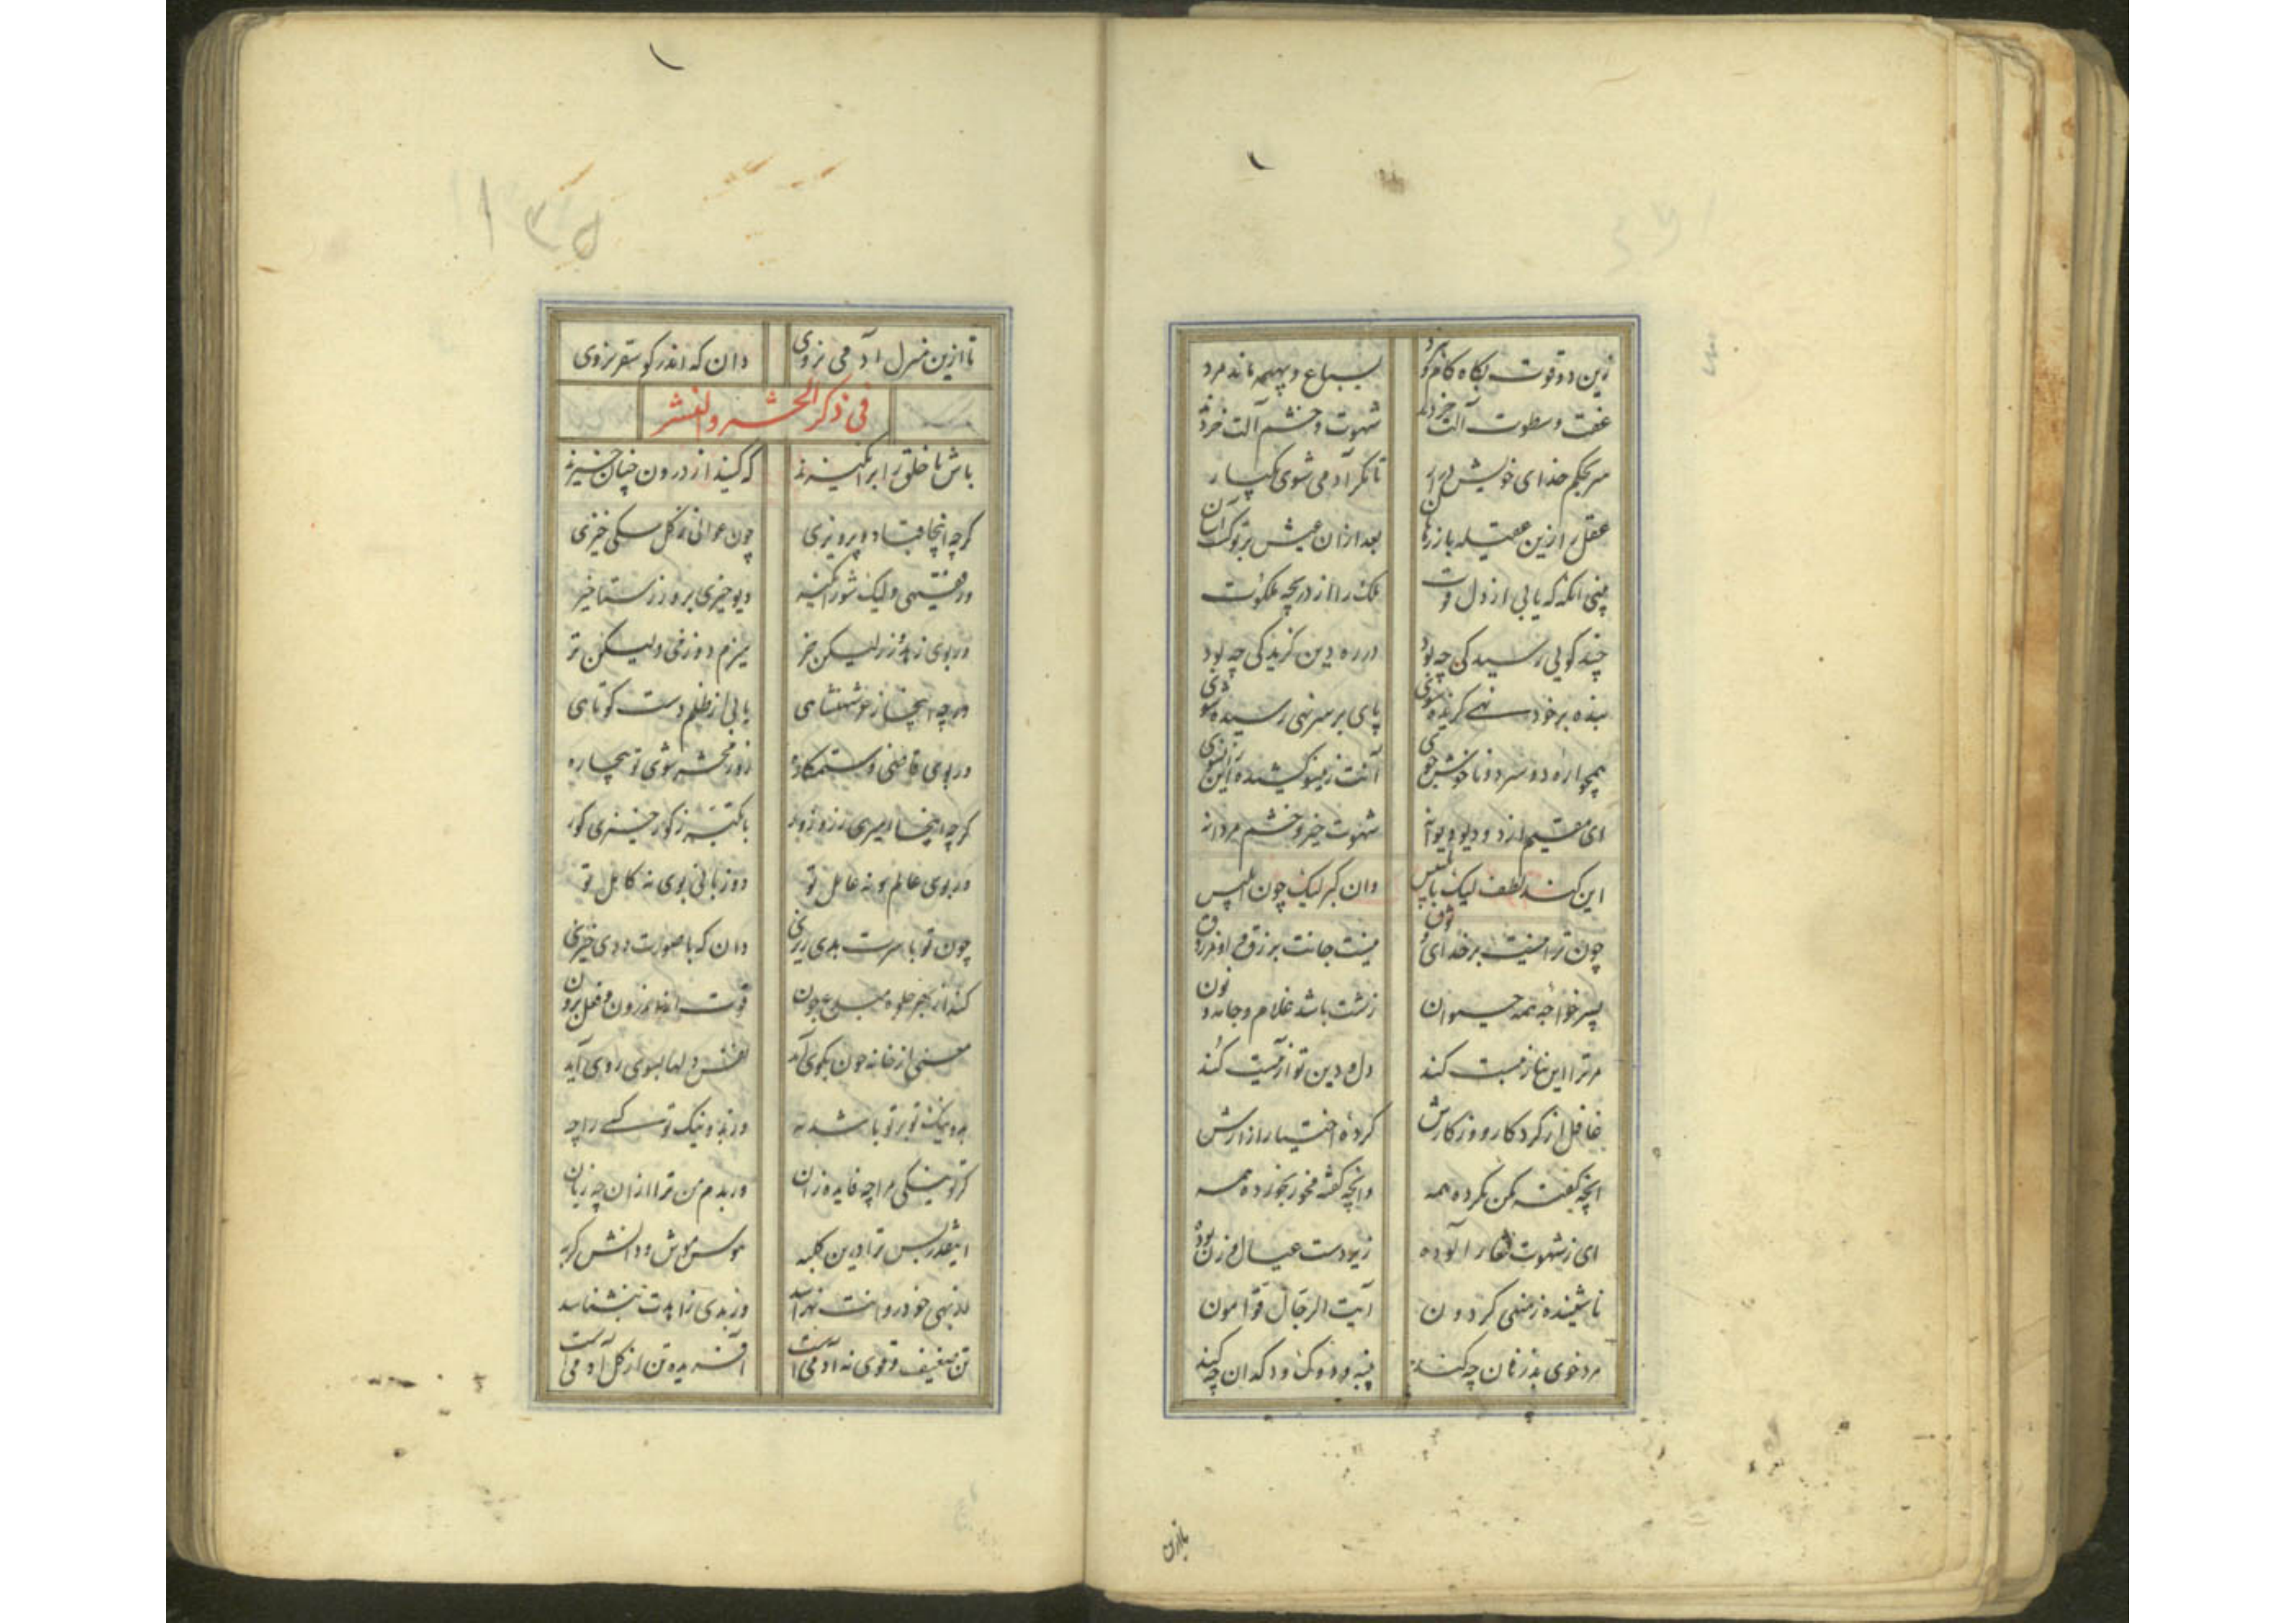 زین دو قوت بگاه کام و
بسباع و بهیمه ماند مرد
عفت و سطوت آلت خرد
شهوت و خشم آلت خر
سر بحکم خدای خویش در آر
تا مگر آدمی شوی یکبار
عقل را زین عقیله باز رهان
بعد ازان عیش بر تو کرد آسان
آنکه که یابی از دل قوت
ملک را از دریچه ملکوت
چند کویی رسیدکی چه بود
در ره دین کزیدکی چه بود
بنده بر خود نهی کزیده شوی
پای بر سر نهی رسیده شوی
همچو اره دو سر دو ناخوش خوی
آنت زینسو کشیده زانسوی
ای مقیم از دو دیو دیوانه
شهوت خیز و خشم مردانه
این کند لطف لیک با تلبیس
وان کبر لیک چون ابلیس
چون ترا نیست بر خدای وثوق
نیست جانت بر زق او مرزوق
پسر خواجه همه حیوان
زشت باشد غلام و جامه و نون
مر ترا این نماز نیست کند
دل و دین تو از کند
غافل از کرد کار و وز کارش
کرده اختیار از ارش
آنچه کفته مکن بکرده همه
وانچه کفته مخور بخورده همه
ای ز شهوت آلوده
زیر دست عیال و زن بوده
ناشنیده ز منهی کردون
آیت الرجال قوامون
مرد خوی بد زنان چه کند
پنبه و دوک و دکدان چه کند
تا ازین منزل آدمی نروی
دان که اندر کو سقر بروی
فی ذکر الحشر والنشر
باش تا خلق را بر انکیزند
که کیند از درون چنان خیزند
کرچه اینجا قباد و پرویزی
چون عوانی ز کل سکی خیزی
ور فقیهی ولیک شور انکیز
دیو خیزی بروز رستاخیز
ور بوی لیکن خر
هیزم دوزخی ولیکن تر
ورچه اینجا ز خوش شاهی
یابی از ظلم دست کوتاهی
ور بوی قاضی و ستمکاره
روز محشر شوی تو بیچاره
کرچه اینجا امیری
با کتبه ز کور خیزی کور
ور بوی عالم و نه عامل تو
دوزبانی بوی نه کامل تو
چون تو با سیرت بدی
دان که با صورت ددی خیزی
کند از بهر جلوه مبدع چون
قوت اندرون و فعل برون
معنی از خانه چون بکوی آید
نقش دلها بسوی روی آید
بد و نیک تو بر تو باشد نه
وز بد و نیک تو کسی را چه
کر تو نیکی مرا چه فایده زان
ور بدم من ترا ازان چه زیان
اینقدر بس ترا درین کلبه
موس موش و دانش کربه
خود روانت نهراسد
وز بدی زاهدت بنشناسد
تن ضعیف و قوی نه آدمی است
آفریده تن از کل آدمی است
۱۳۵